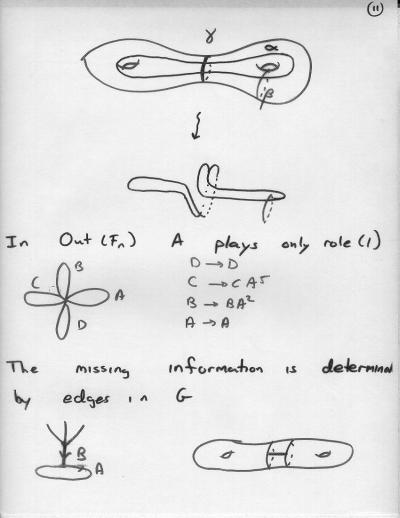 11
γ
α
β
In Out (Fn) A plays only role (1)
B
C
A
D
D → D
C → C A⁵
B → B A²
A → A
The missing information is determined
by edges in G
B
A